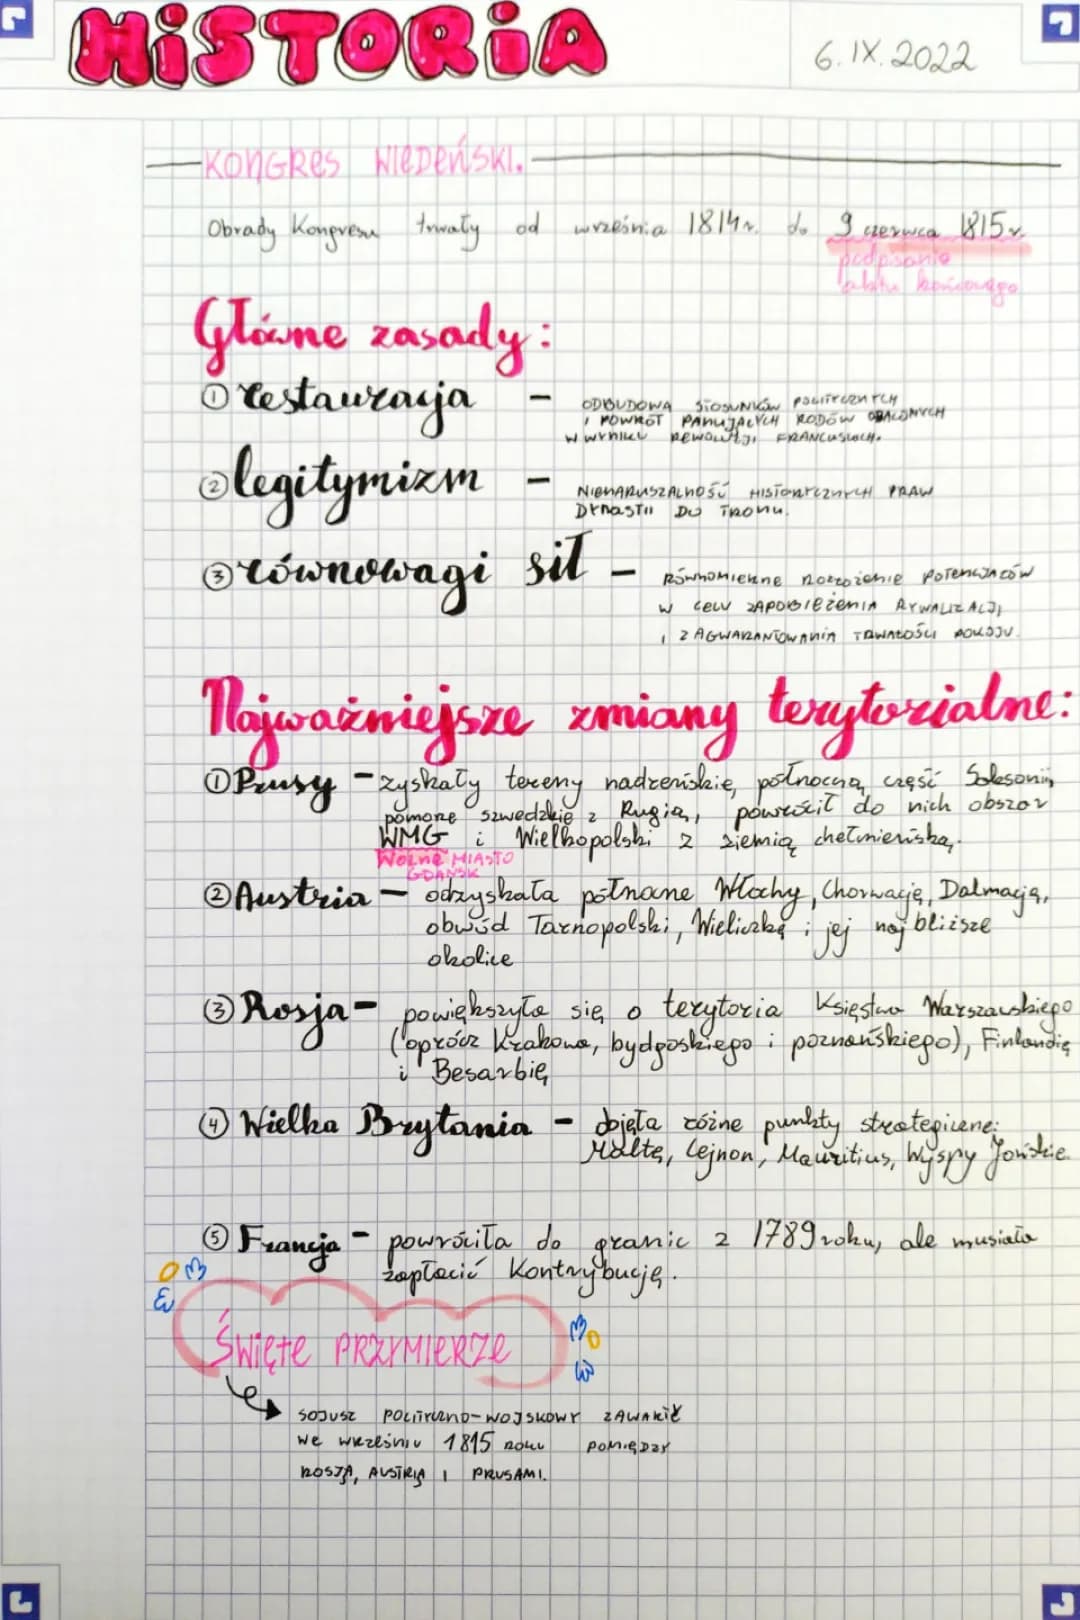 HiSTORiA
6.IX.2022
KONGRES WIEDEŃSKI.
Obrady Kongresu trwały od września 1814r. do 9 czerwca 1815r
podpisanie
aktu końcowego
Główne zasady:
① restauracja – ODBUDOWA STOSUNKÓW POLITYCZNYCH
I POWRÓT PANUJĄCYCH RODÓW OBALONYCH
W WYNIKU REWOLUCJI FRANCUSKICH.
② legitymizm – NIENARUSZALNOŚĆ HISTORYCZNYCH PRAW
DYNASTII DO TRONU.
③ równowagi sił – RÓWNOMIERNE ROZŁOŻENIE POTENCJAŁÓW
W CELU ZAPOBIEŻENIA RYWALIZACJI
I ZAGWARANTOWANIA TRWAŁOŚCI POKOJU.
Najważniejsze zmiany terytorialne:
① Prusy – zyskały tereny nadreńskie, północną część Saksonii,
pomorze szwedzkie z Rugią, powrócił do nich obszar
WMG i Wielkopolski z ziemią chełmieńską.
WOLNE MIASTO
GDAŃSK
② Austria – odzyskała północne Włochy, Chorwację, Dalmację,
obwód Tarnopolski, Wieliczkę i jej najbliższe
okolice
③ Rosja – powiększyła się o terytoria Księstwa Warszawskiego
(oprócz Krakowa, bydgoskiego i poznańskiego), Finlandię
i Besarbię
④ Wielka Brytania – objęła różne punkty strategiczne:
Maltę, Cejnon, Mauritius, Wyspy Jońskie
⑤ Francja – powróciła do granic z 1789 roku, ale musiała
zapłacić kontrybucję.
ŚWIĘTE PRZYMIERZE
SOJUSZ POLITYCZNO-WOJSKOWY ZAWARTY
WE WRZEŚNIU 1815 ROKU POMIĘDZY
ROSJĄ, AUSTRIĄ I PRUSAMI.